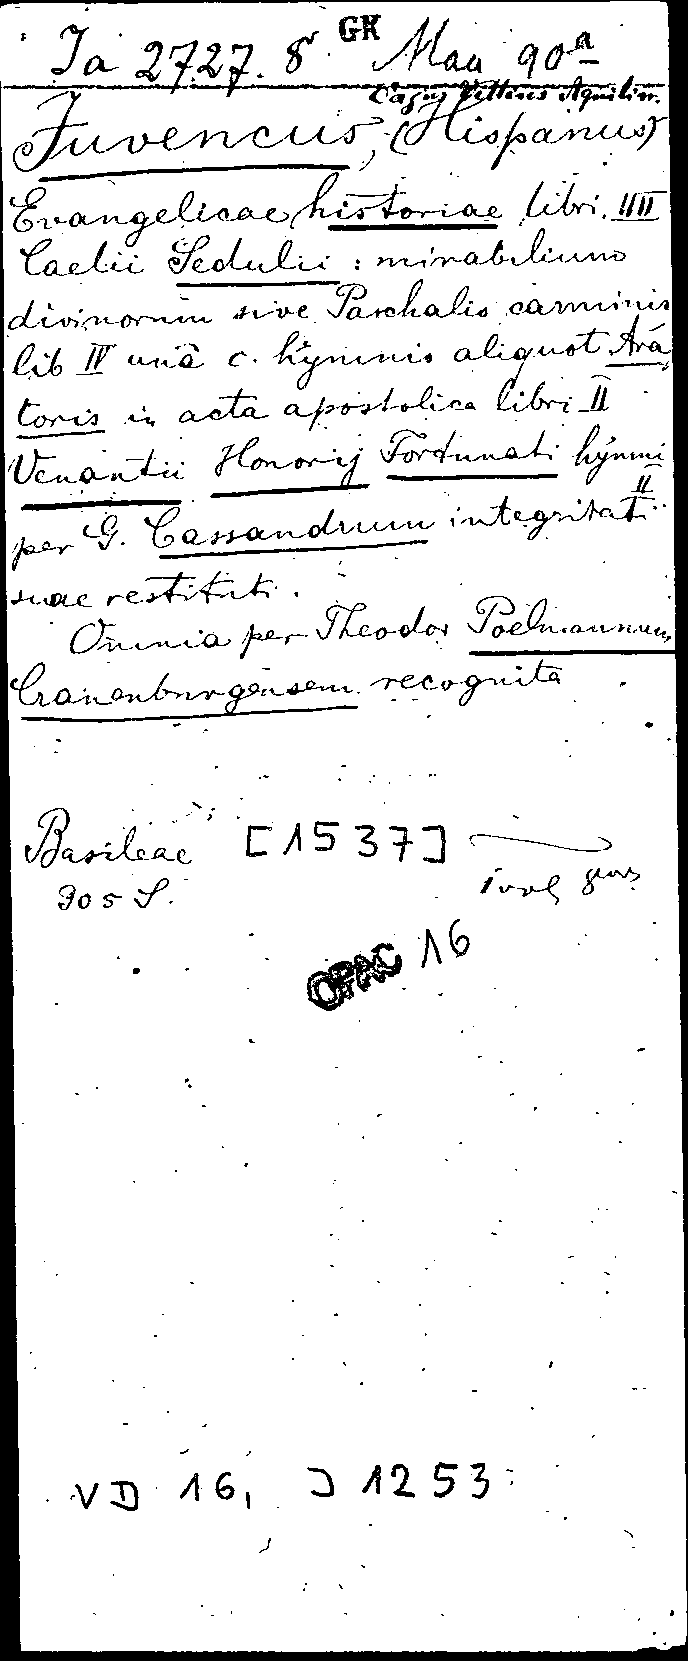 Ja 2727. 8° GK Mau 90a
Cajus Vettius Aquilin.
Juvencus, (Hispanus)
Evangelicae historiae libri. IIII
Caelii Sedulii : mirabilium
divinorum sive Paschalis carminis
lib IV unâ c. hymnis aliquot Ará
toris in acta apostolica libri II
Venantii Honorij Fortunati hymni
II
per G. Cassandrum integritati
suae restituti.
Omnia per Theodor Poelmannum
Cranenburgensem recognita
Basileae [1537]
305 S.
OPAC 16
VD 16, J 1253